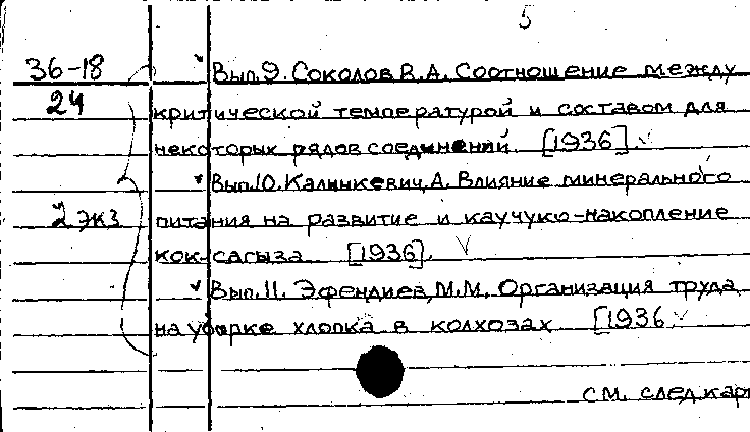 5
36-18 Вып.9. Соколов В.А. Соотношение между
24 критической температурой и составом для
некоторых рядов соединений. [1936]. ✓
Вып.10. Калинкевич, А. Влияние минерального
2 экз питания на развитие и каучуко-накопление
кок-сагыза [1936]. ✓
Вып.11. Эфендиев, М.М. Организация труда
на уборке хлопка в колхозах [1936 ✓
см. след.кар